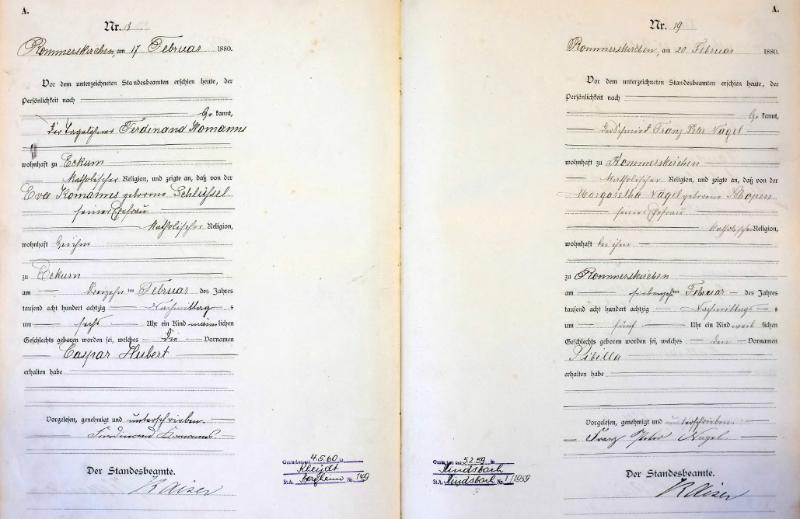 A.
Nr. 18
Rommerskirchen, am 17 Februar 1880.
Vor dem unterzeichneten Standesbeamten erschien heute, der
Persönlichkeit nach
kannt,
der Tagelöhner Ferdinand Komanns
wohnhaft zu Eckum
katholischer Religion, und zeigte an, daß von der
Eva Komanns geborene Schlüssel
seiner Ehefrau
katholischer Religion,
wohnhaft bei ihm
zu Eckum
am Februar des Jahres
tausend acht hundert achtzig Nachmittag s
um sechs Uhr ein Kind männlichen
Geschlechts geboren worden sei, welches die Vornamen
Caspar Hubert
erhalten habe
Vorgelesen, genehmigt und unterschrieben.
Ferdinand Komanns
Der Standesbeamte.
Kaiser
4.5.60
St.A. Bergheim №
A.
Nr. 19
Rommerskirchen, am 20 Februar 1880.
Vor dem unterzeichneten Standesbeamten erschien heute, der
Persönlichkeit nach
kannt,
der Schmied Franz Peter Nagel
wohnhaft zu Rommerskirchen
katholischer Religion, und zeigte an, daß von der
Margaretha Nagel geborene
seiner Ehefrau
katholischer Religion,
wohnhaft bei ihm
zu Rommerskirchen
am siebenzehnten Februar des Jahres
tausend acht hundert achtzig Nachmittags
um fünf Uhr ein Kind weiblichen
Geschlechts geboren worden sei, welches den Vornamen
Sibilla
erhalten habe
Vorgelesen, genehmigt und unterschrieben
Franz Peter Nagel
Der Standesbeamte.
Kaiser
5.2.59
St.A. № 1/1959